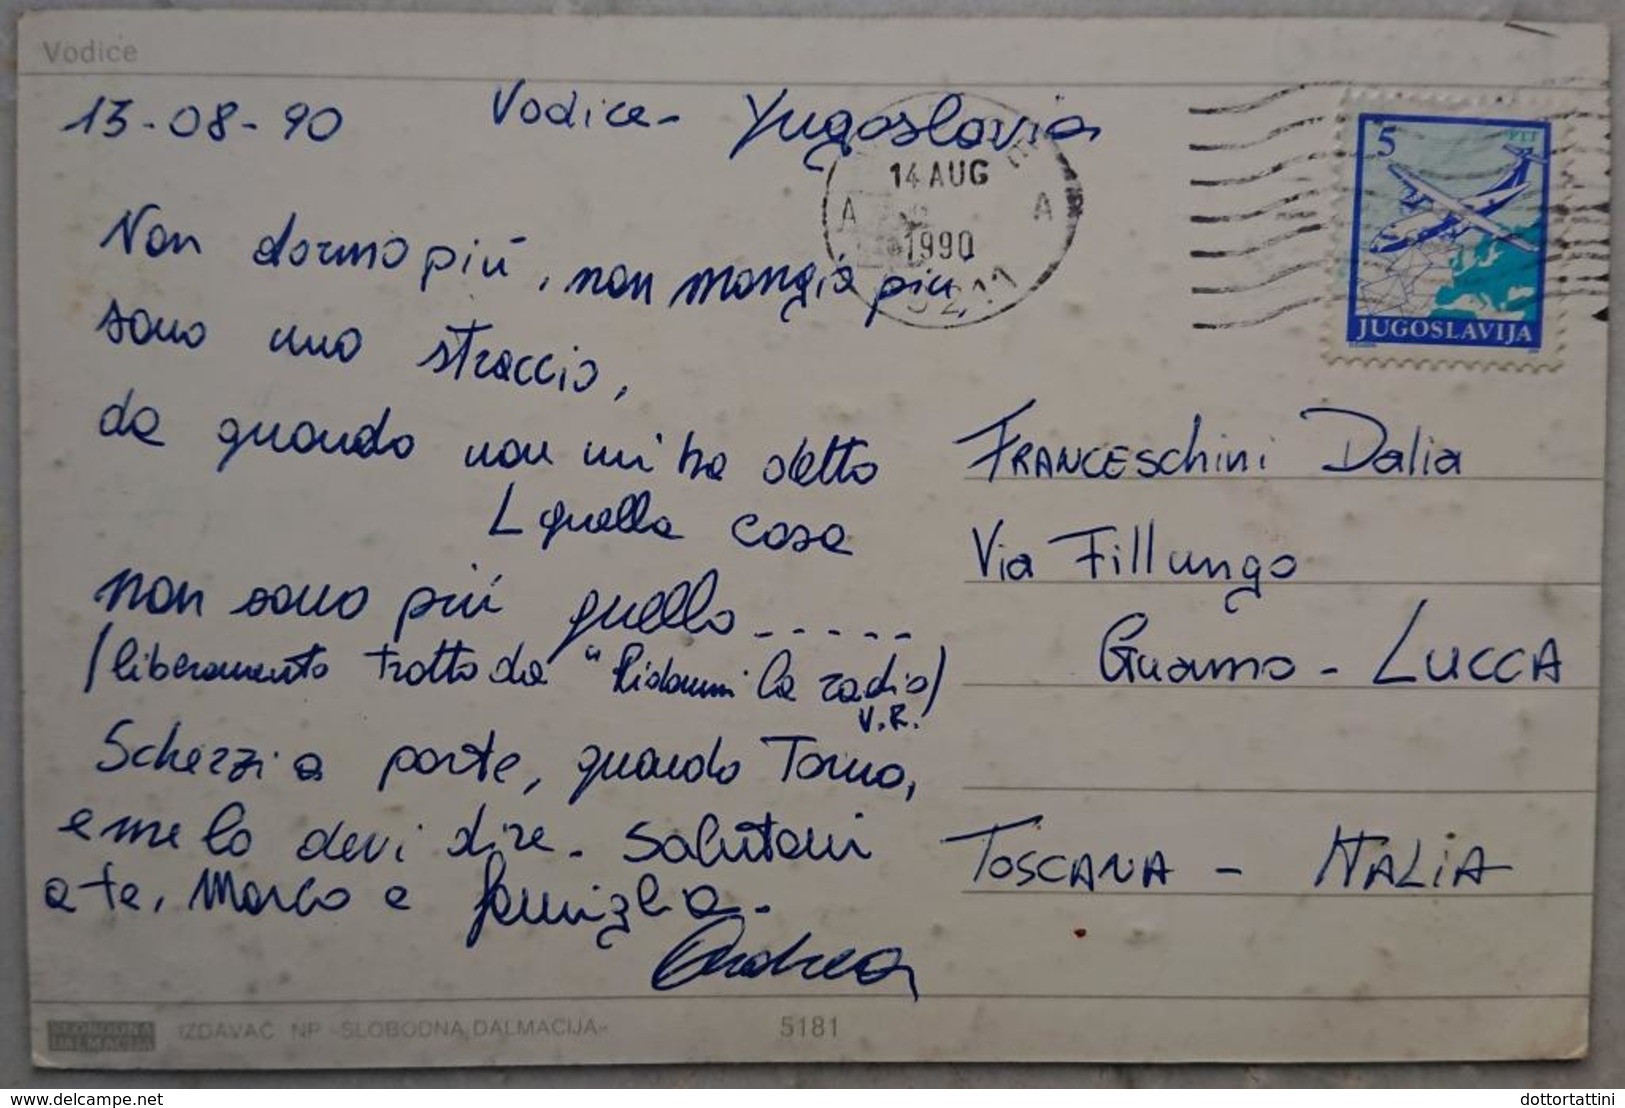 Vodice
13-08-90 Vodice - Yugoslavia
14 AUG
1990
A A
5 PTT
JUGOSLAVIJA
Non dormo più, non mangio più,
sono uno straccio,
da quando non mi ha detto
quella cosa
non sono più quello......
(liberamente tratto da "Ridammi la radio)
V.R.
Scherzi a parte, quando Torno,
e me lo devi dire. Salutoni
a te, Marco e famiglia.
Andrea
FRANCESchini Dalia
Via Fillungo
Guamo - LUCCA
TOSCANA - ITALIA
SLOBODNA
DALMACIJA
IZDAVAČ NP »SLOBODNA DALMACIJA« 5181
delcampe.net
dottortattini